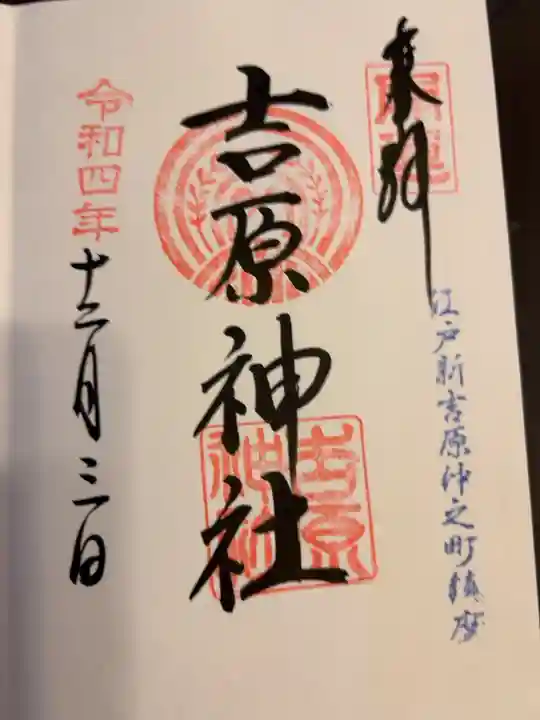 奉拝
開運
江戸新吉原仲之町鎮座
吉原神社
吉原
神社
令和四年十二月三日